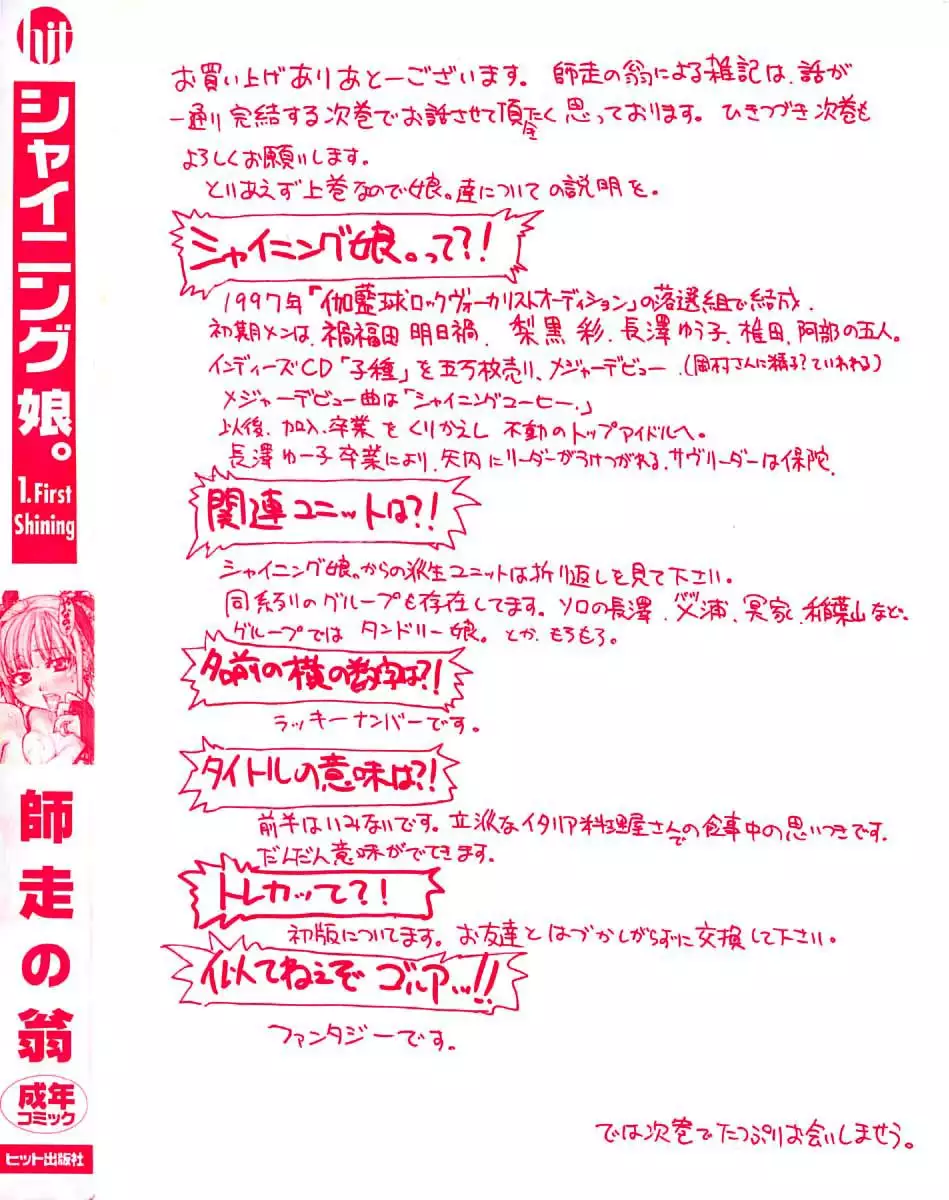 hit
シャイニング娘。
1.First
Shining
師走の翁
成年
コミック
ヒット出版社
お買い上げありあとーございます。師走の翁による雑記は、話が
一通り完結する次巻でお話させて頂たく思っております。ひきつづき次巻も
よろしくお願いします。
とりあえず上巻なので娘。達についての説明を。
シャイニング娘。って?!
1997年「伽藍球ロックヴォーカリストオーディション」の落選組で結成。
初期メンは、禍福田 明日禍、梨黒 彩、長澤ゆう子、椎田、阿部の五人。
インディーズCD「子種」を五万枚売り、メジャーデビュー。(岡村さんに精子?ていわれる)
メジャーデビュー曲は「シャイニングコーヒー。」
以後、加入、卒業をくりかえし不動のトップアイドルへ。
長澤ゆー子卒業により、矢内にリーダーがうけつがれる、サヴリーダーは保陀。
関連ユニットは?!
シャイニング娘。からの派生ユニットは折り返しを見て下さい。
同系列のグループも存在してます。ソロの長澤、浦、冥家、稲葉山など。
グループでは タンドリー娘。とか、もろもろ。
名前の横の数字は?!
ラッキーナンバーです。
タイトルの意味は?!
前半はいみないです。立派なイタリア料理屋さんでの食事中の思いつきです。
だんだん意味がでてきます。
トレカッて?!
初版についてます。お友達とはづかしがらずに交換して下さい。
似てねぇぞ ゴルアッ!!
ファンタジーです。
では次巻でたっぷりお会いしませう。